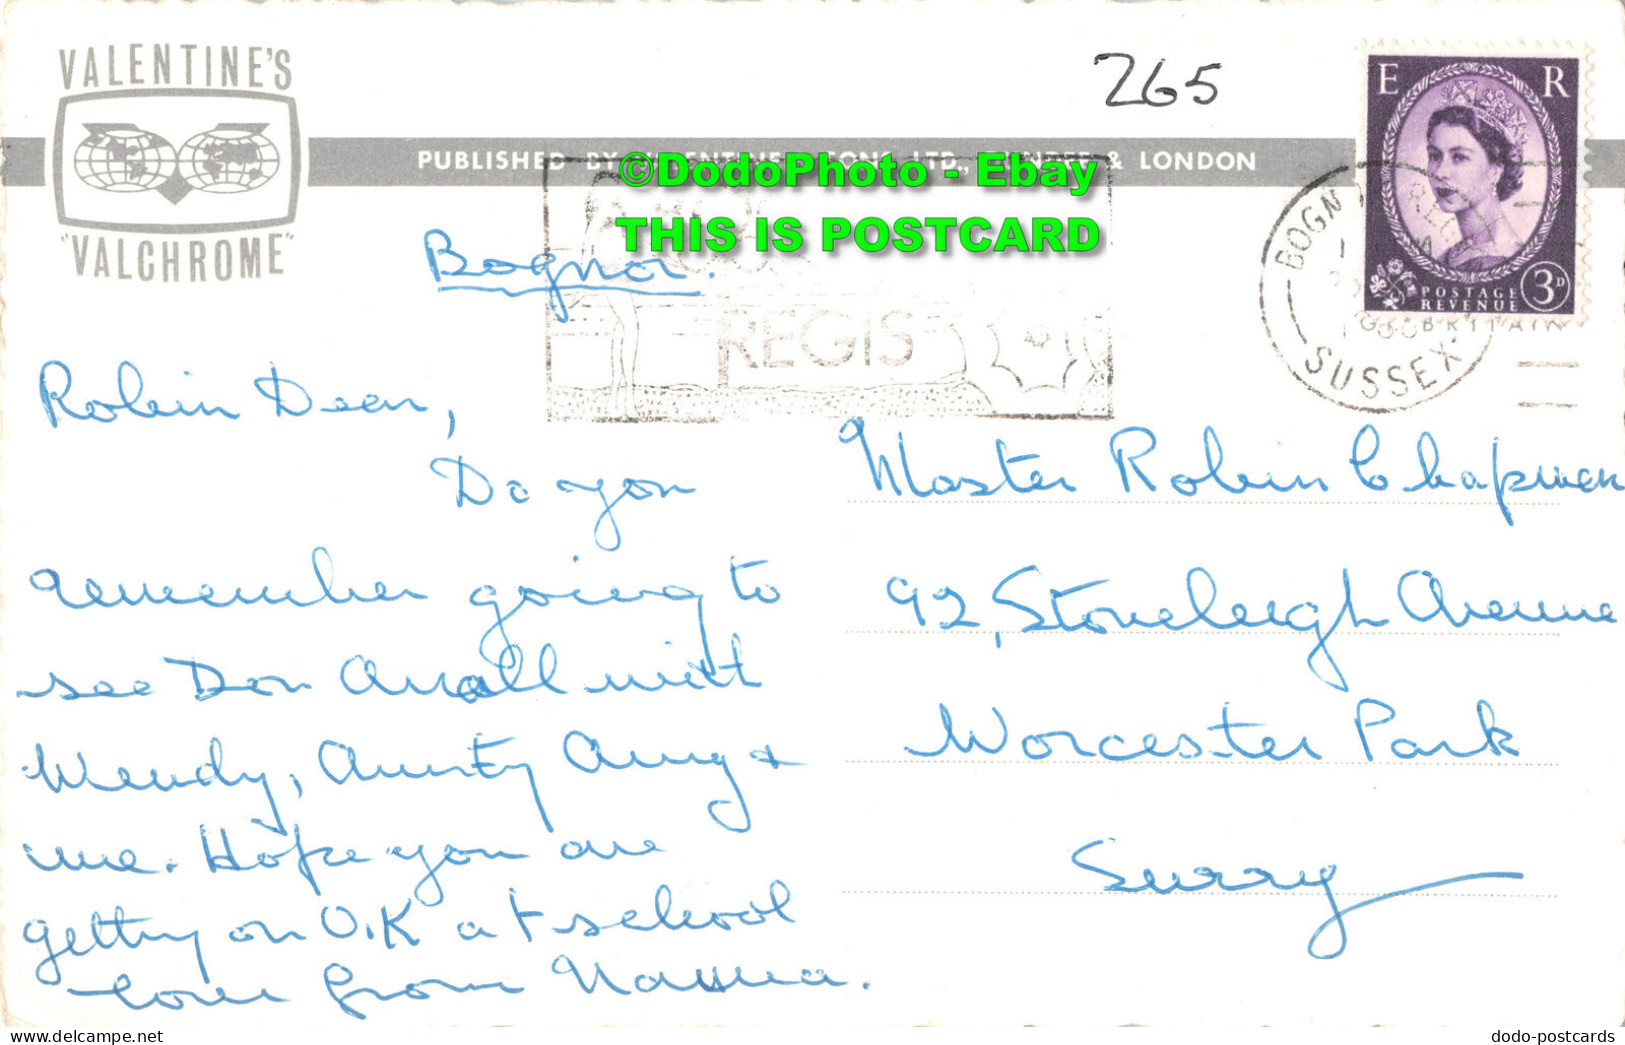 VALENTINE'S
"VALCHROME"
265
PUBLISHED BY VALENTINE & SONS LTD., DUNDEE & LONDON
©DodoPhoto - Ebay
THIS IS POSTCARD
REGIS
E R
POSTAGE
REVENUE
3D
BOGNOR REGIS
SUSSEX
GT. BRITAIN
Bognor.
Robin Dear,
Do you
remember going to
see Don Arroll with
Wendy, Aunty Amy +
me. Hope you are
getting on O.K at school
love from Nanna.
Master Robin Chapman
92, Stoneleigh Avenue
Worcester Park
Surry
dodo-postcards
www.delcampe.net